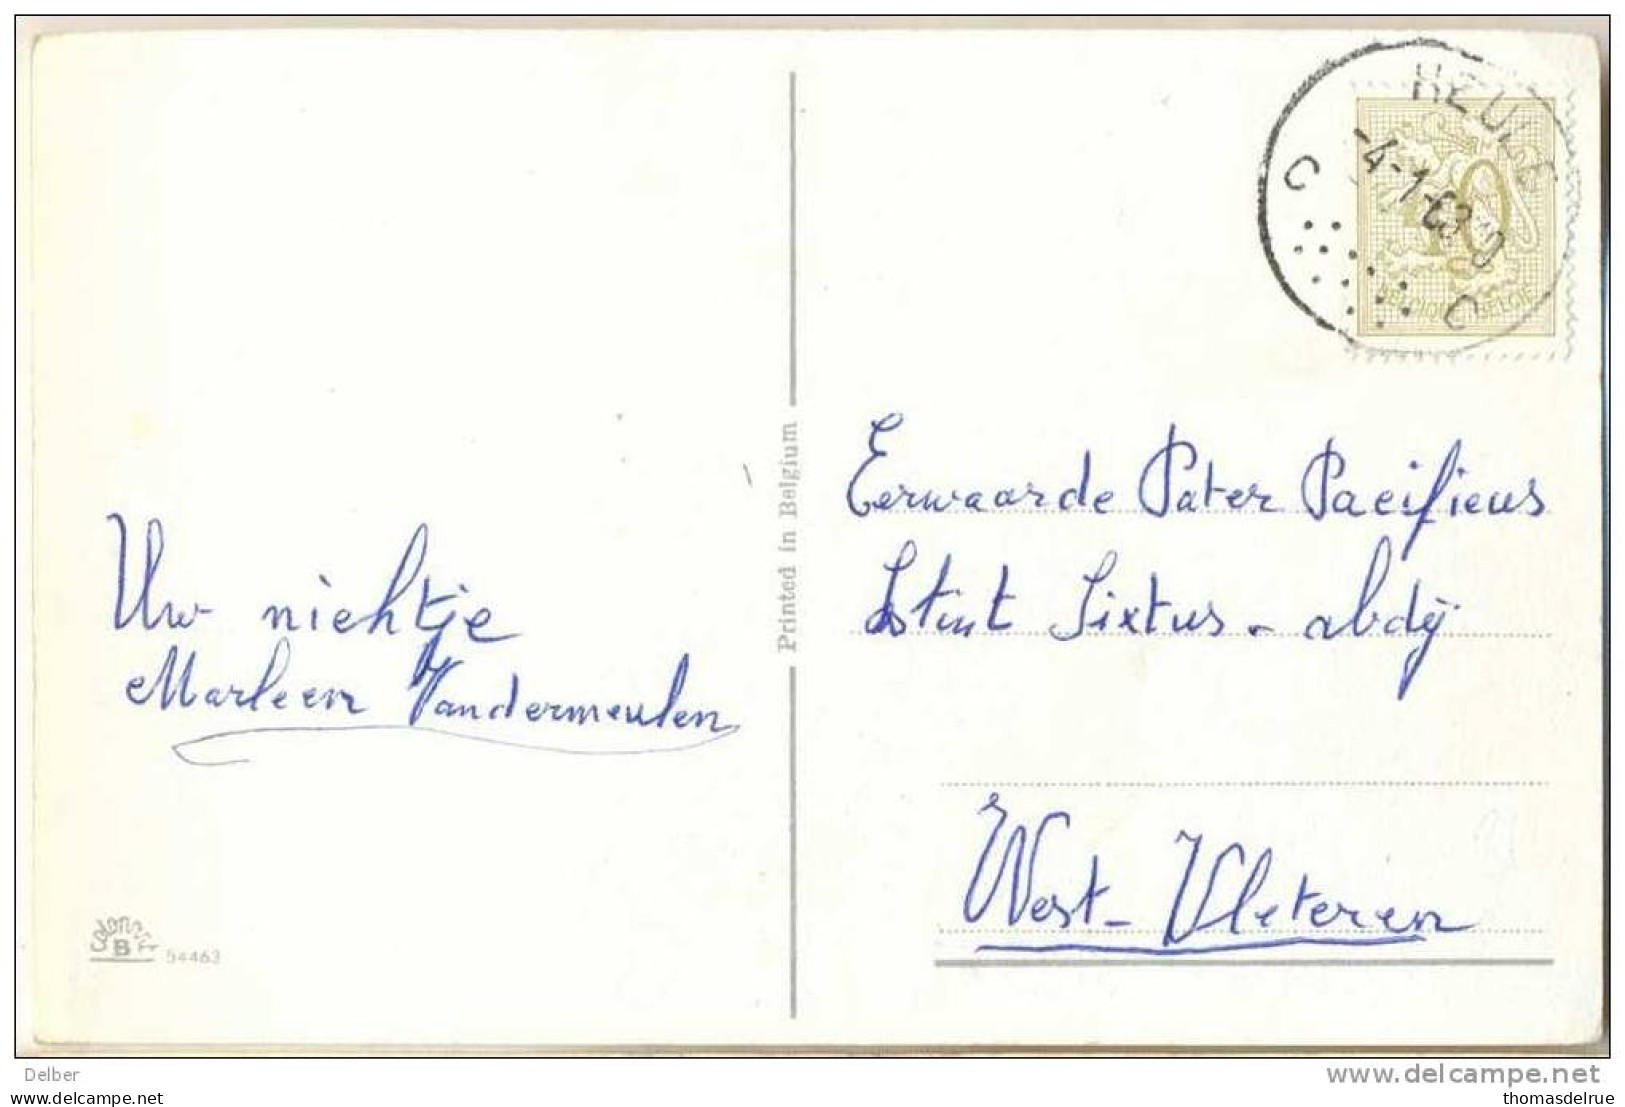 HEULE
-4-1-63 10
C C
BELGIQUE BELGIE
Uw nichtje
Marleen Vandermeulen
Printed in Belgium
Eerwaarde Pater Pacificus
Sint Sixtus - abdij
West-Vleteren
54463
Delber
www.delcampe.net
thomasdelrue